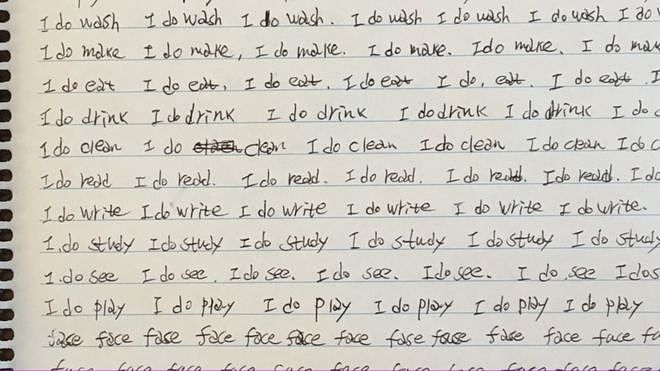 I do wash I do wash I do wash. I do wash I do wash I do wash I do
I do make I do make, I do make. I do make. I do make. I do
I do eat I do eat, I do eat. I do eat I do, eat. I do eat
I do drink I do drink I do drink I do drink I do drink I do
I do clean I do clean I do clean I do clean I do clean I do
I do read I do read. I do read. I do read. I do read. I do read. I do
I do write I do write I do write I do write I do write I do write.
I.do study I do study I do study I do study I do study I do study
I.do see I do see. I do see. I do see. I do see. I do see I do
I do play I do play I do play I do play I do play I do play
face face fase face face face face fase fase face face face